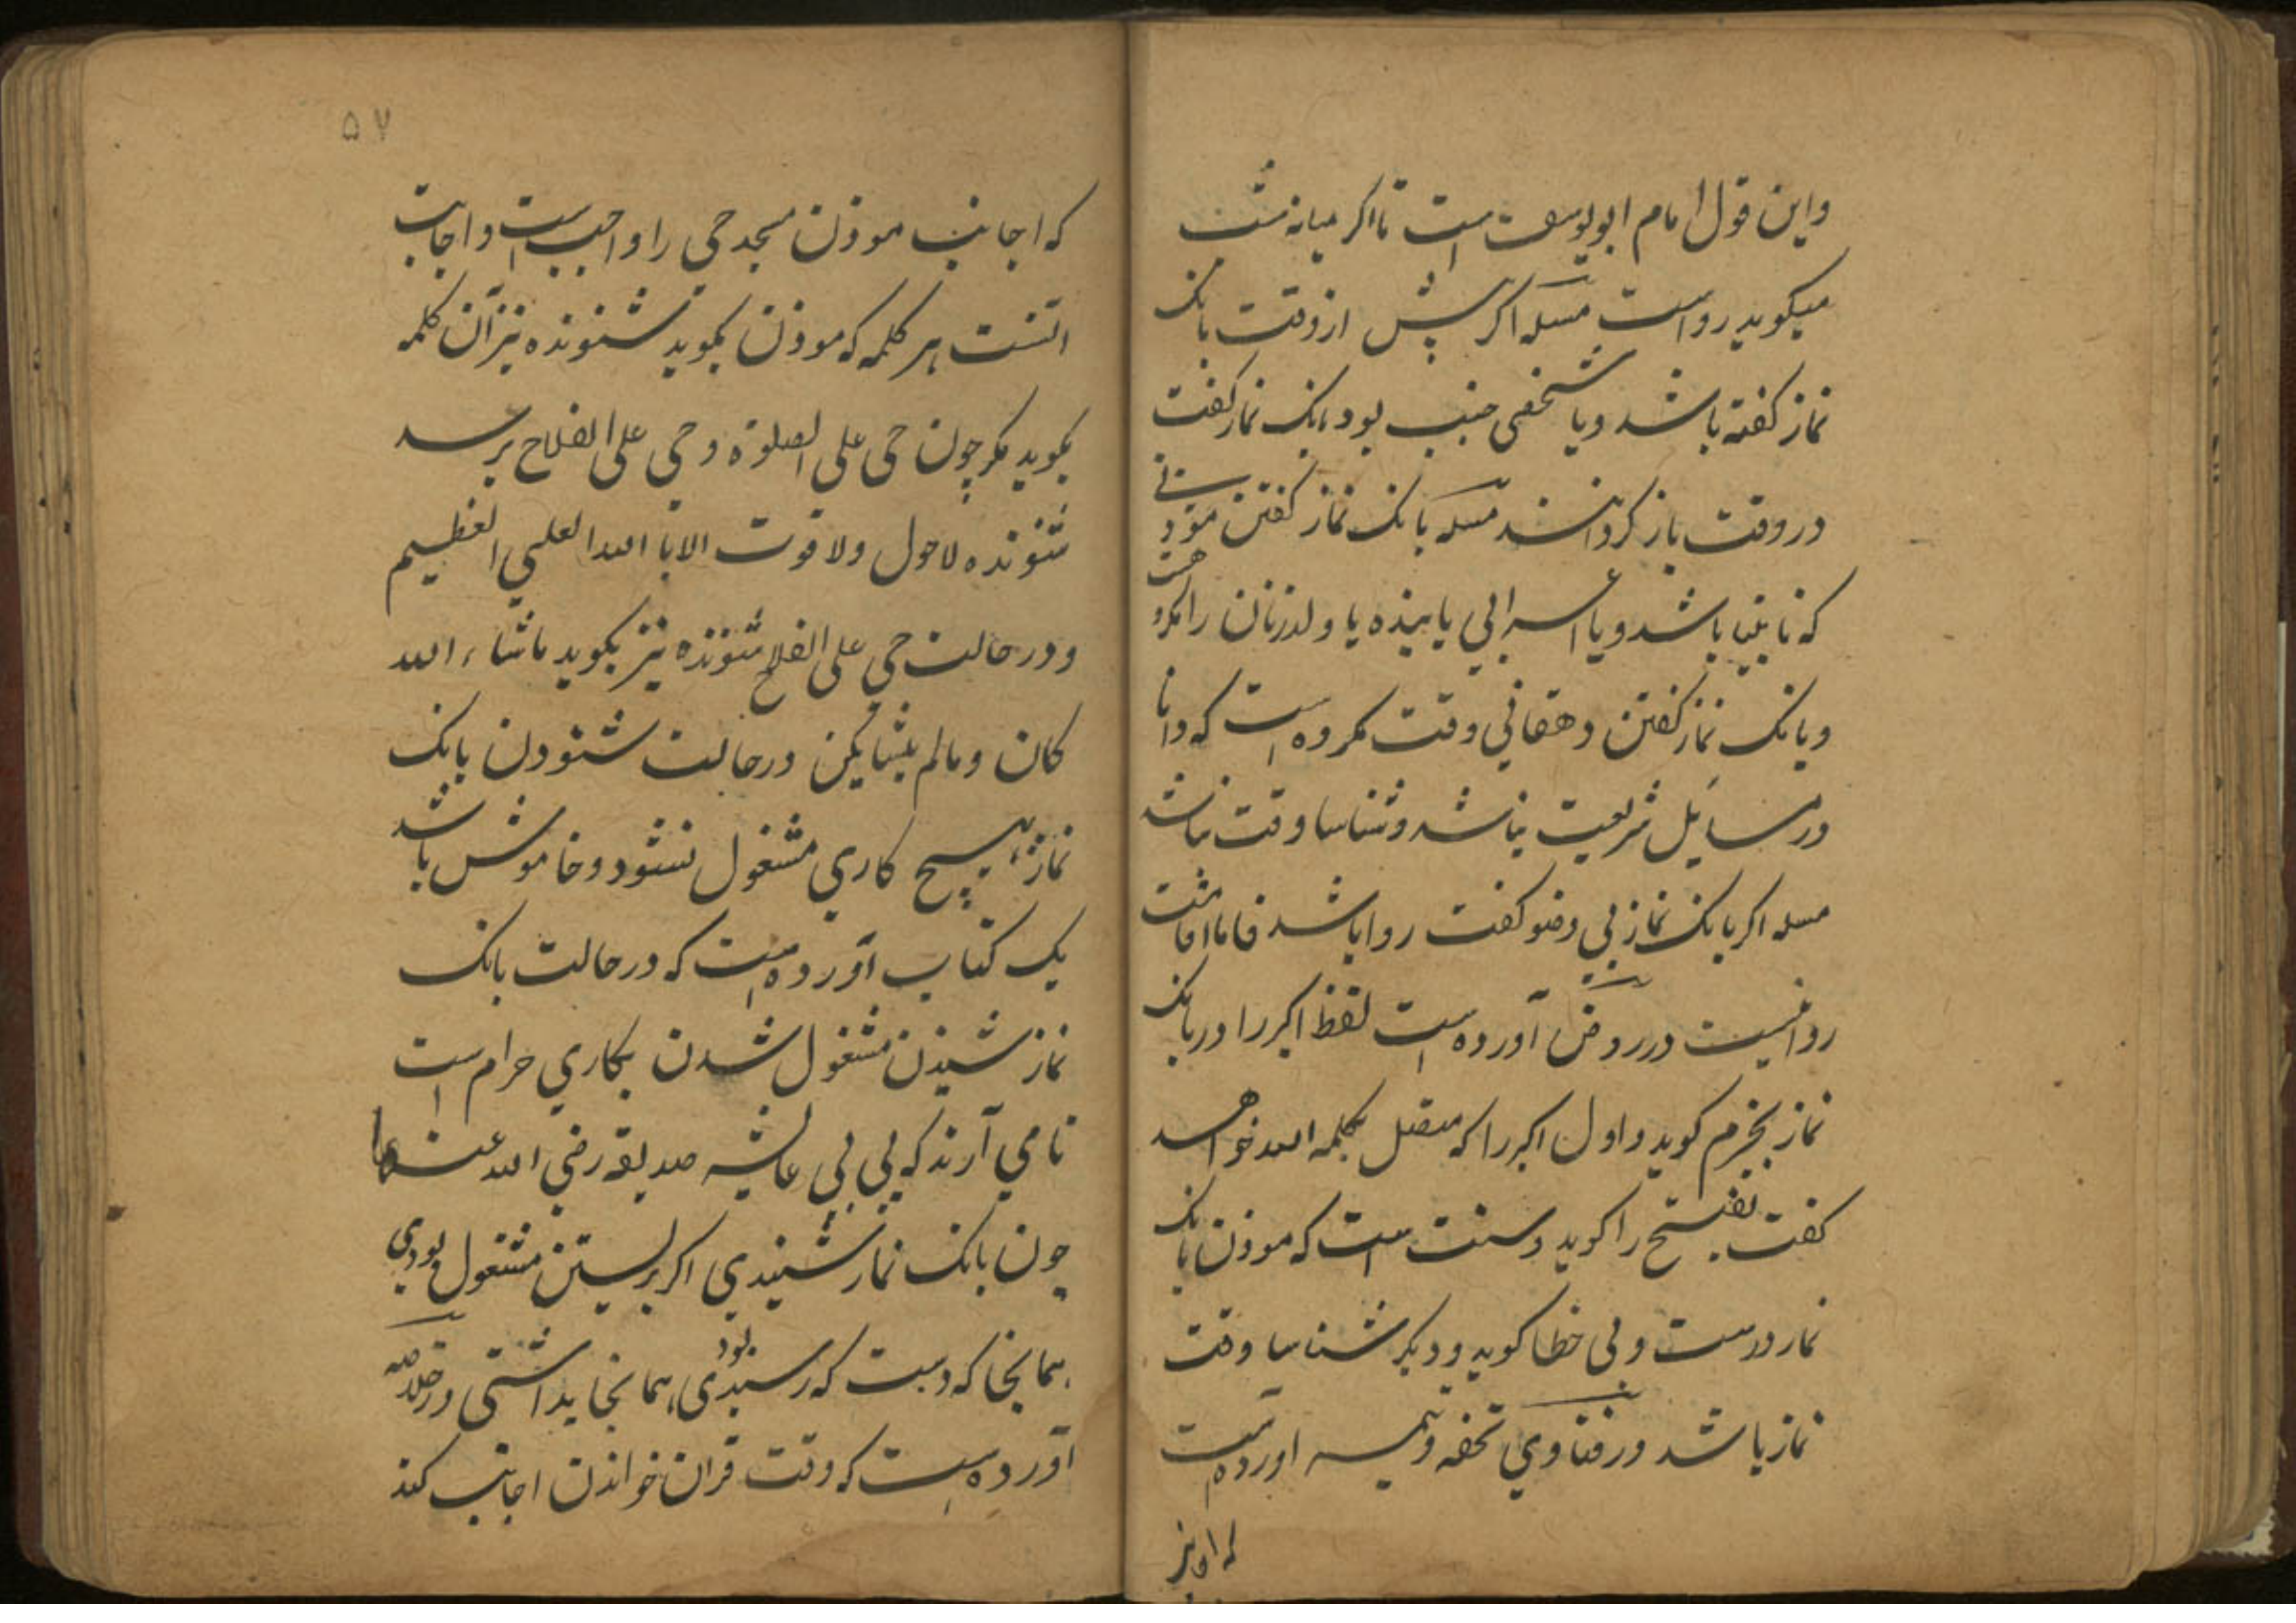 واین قول امام ابویوسف است تا اکر میانه شب
میکوید رواست مسله اکر پیش از وقت بانک
نماز کفته باشد ویا شخصی جنب بود بانک نماز کفت
در وقت باز کردانند مسله بانک نماز کفتن موذنی
که نابینا باشد ویا اعرابی یا بنده یا ولدزنا ان را مکروهست
وبانک نماز کفتن دهقانی وقت مکروه است که دانا
در مسایل شریعت نباشد وشناسا وقت نباشد
مسله اکر بانک نماز بی وضو کفت روا باشد فاما اقامت
روا نیست در روض آورده است لفظ اکبر را در بانک
نماز بجزم کوید واول اکبر را که متصل بکلمه الله خواهد
کفت بفتح را کوید وسنت است که موذن بانک
نماز درست وبی خطا کوید ودیکر شناسا وقت
نماز باشد ودر فتاوی تحفه آورده است
که اجابت
که اجابت موذن مسجد حی را واجب است واجابت
انست هر کلمه که موذن بکوید شنونده نیز آن کلمه
بکوید مکر چون حی علی الصلوة وحی علی الفلاح برسد
شنونده لاحول ولا قوت الا با الله العلی العظیم
ودر حالت حی علی الفلاح شنونده نیز بکوید ماشاء الله
کان ومالم یشا یکن در حالت شنودن بانک
نماز بهیچ کاری مشغول نشود وخاموش باشد
یک کتاب آورده است که در حالت بانک
نماز شنیدن مشغول شدن بکاری حرام است
تا می آرند که بی بی عایشه صدیقه رضی الله عنها
چون بانک نماز شنیدی اکر برلستن مشغول بودی
همانجا که دست که رسیدی بود همانجا بداشتی ودر خلاصه
آورده است که وقت قران خواندن اجابت کند
۵۷